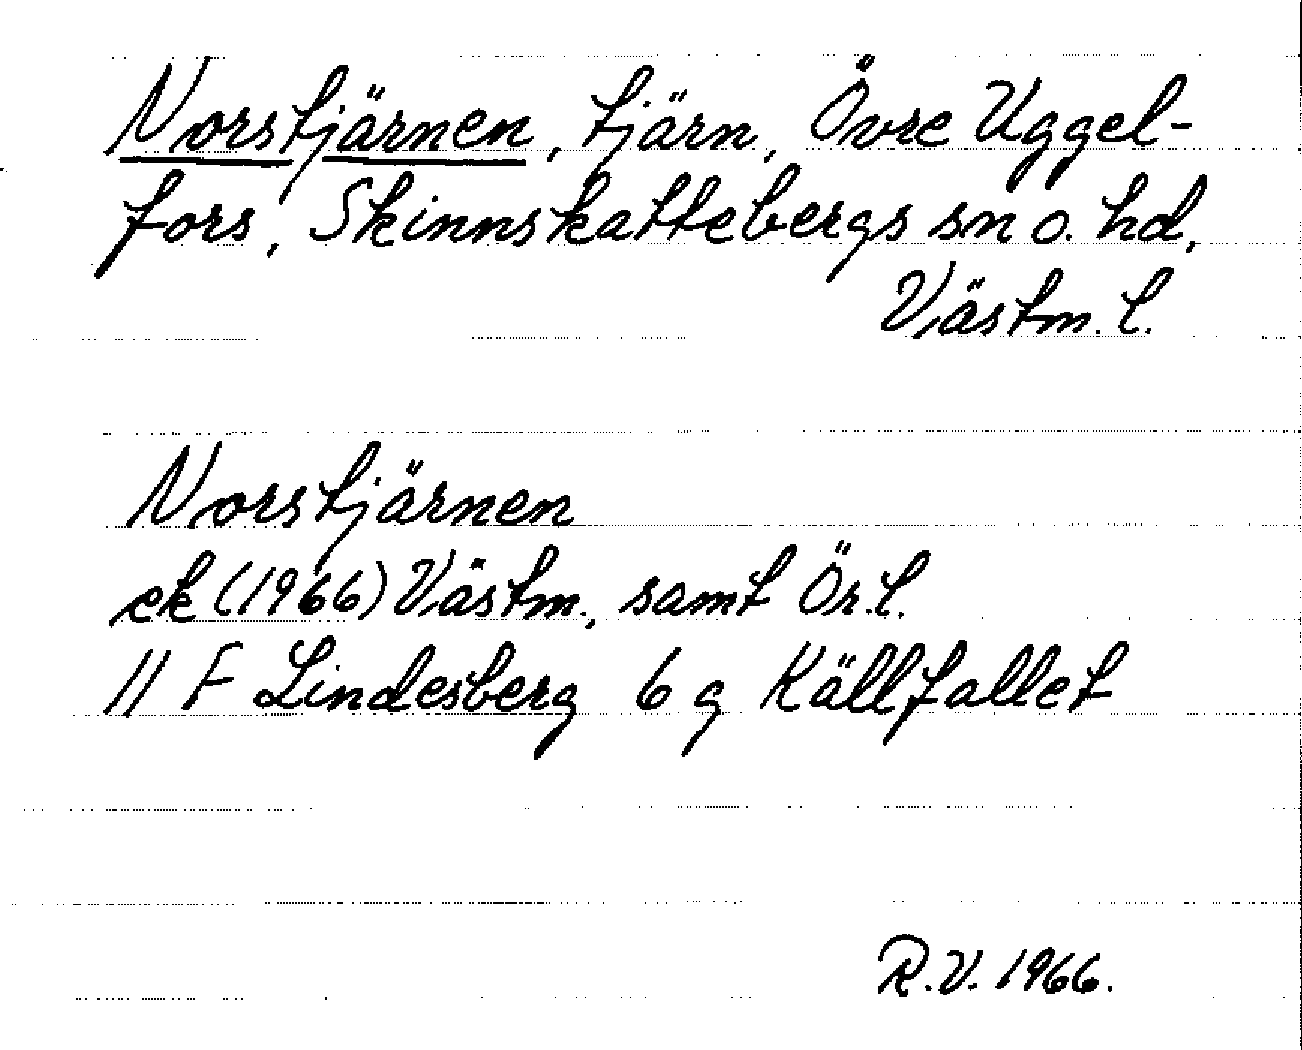 Norstjärnen, tjärn, Övre Uggel-
fors, Skinnskattebergs sn o. hd,
Västm. l.
Norstjärnen
ek (1966) Västm., samt Ör. l.
11 F Lindesberg 6 g Källfallet
R.V. 1966.